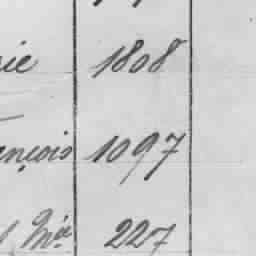 rie 1808
ençois 1097
Mie 227